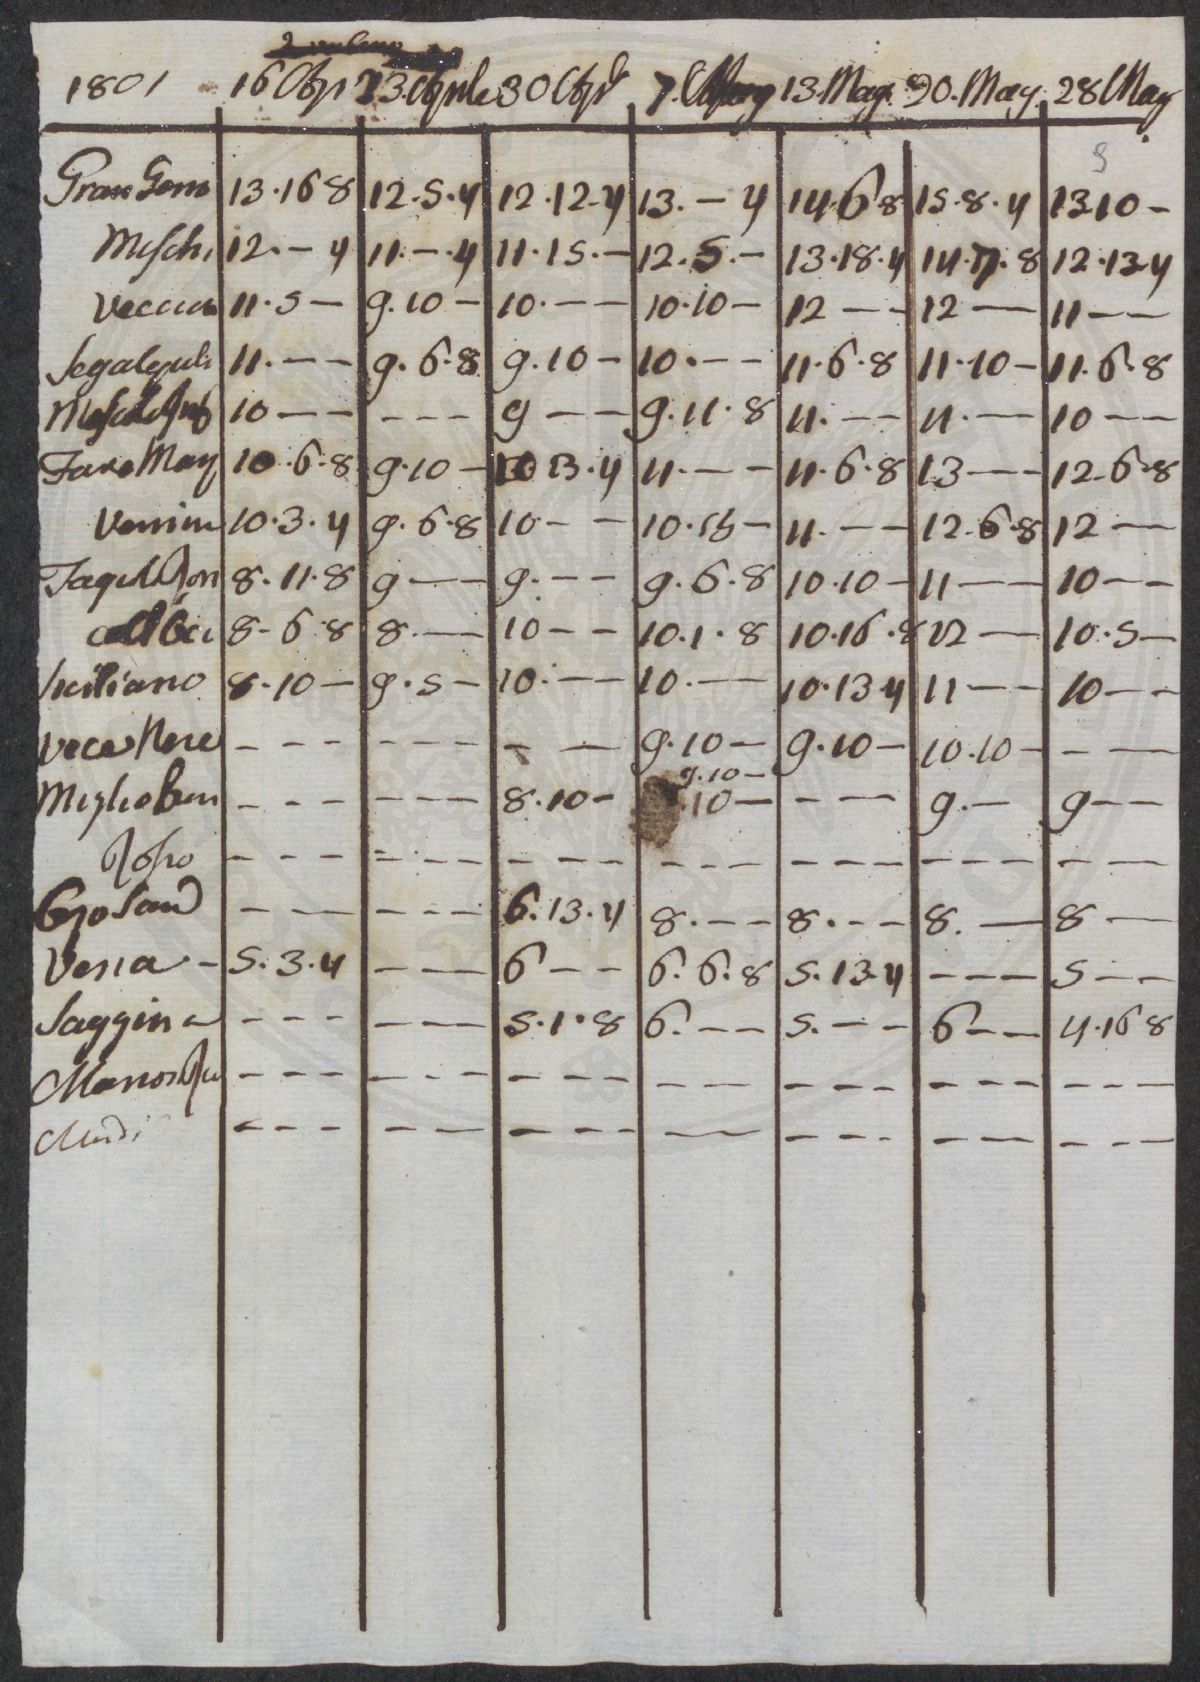 1801 16 Apr 23. Aprile 30 Apr 7. Mag 13. Mag. 20. May. 28 May
9
Gran Gen 13.16 8 12.5.4 12.12.4 13. - 4 14.6 8 15.8.4 13 10 -
Mischi 12. - 4 11. - .4 11.15. - 12.5. - 13.18.4 14.17.8 12.13.4
Veccia 11.5 - 9.10 - 10. - - - 10.10 - 12 - - 12 - 11 - -
Segale 11. - - - 9.6.8 9.10 - 10. - - 11.6.8 11.10 - 11.6.8
10 - - - - - - 9 - - 9.11.8 11. - - 11. - 10 - -
Fave May 10.6.8 9.10 - 10 13.4 11. - - 11.6.8 13 - - 12.6.8
10.3.4 9.6.8 10 - - 10.15 - 11. - - 12.6.8 12 - -
8.11.8 9 - - 9. - - - 9.6.8 10.10 - 11 - - 10 - -
8.6.8 8. - 10 - - 10.1.8 10.16.8 12 - 10.5 -
Siciliano 8.10 - 9.5 - 10. - - 10. - - 10.13.4 11 - - 10 - -
Vecce Nere - - - - - - - - 9.10 - 9.10 - 10.10 - - -
9.10 -
Miglio - - - - - - 8.10 - .10 - - - - 9. - 9 - -
- - - - - - - - - - - - - - - - - - - - -
- - - - - 6.13.4 8. - - - 8. - - - 8. - 8 -
Vena - 5.3.4 - - - 6 - - 6.6.8 5.13.4 - - - 5 - -
Saggina - - - - - - 5.1.8 6. - - 5. - - - 6 - - 4.16 8
- - - - - - - - - - - - - - - - - - - - -
- - - - - - - - - - - - - - - - - -